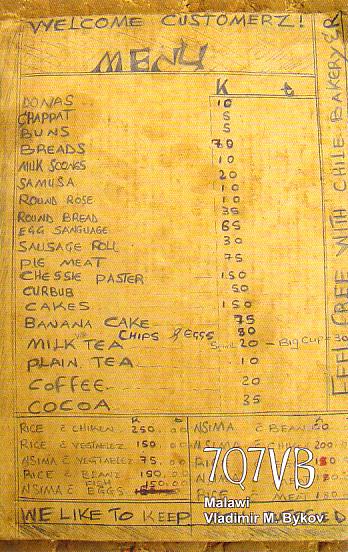 WELCOME CUSTOMERZ!
MENU
K t
DONAS 10
CHAPPAT 5
BUNS 5
BREADS 70
MILK SCONGS 10
SAMUSA 20
ROUND ROSE 10
ROUND BREAD 35
EGG SANGUAGE 65
SAUSAGE ROLL 30
PIE MEAT 75
CHESSIE PASTER 150
CURBUB 50
CAKES 150
BANANA CAKE 75
CHIPS & EGGS 80
MILK TEA Small 20 - BIG CUP - 30
PLAIN TEA 10
COFFEE 20
COCOA 35
RICE C CHIKEN 250.00
RICE C VEGTABLEZ 150.00
NSIMA C VEGTABLEZ 75.00
RICE C BEANZ 150.00
FISH 150.00
NSIMA C EGGS
NSIMA C BEAN
NSIMA C 200.00
C MEAT 180
WE LIKE TO KEEP
FEEL FREE WITH CHILE BAKERY & R
7Q7VB
Malawi
Vladimir M. Bykov